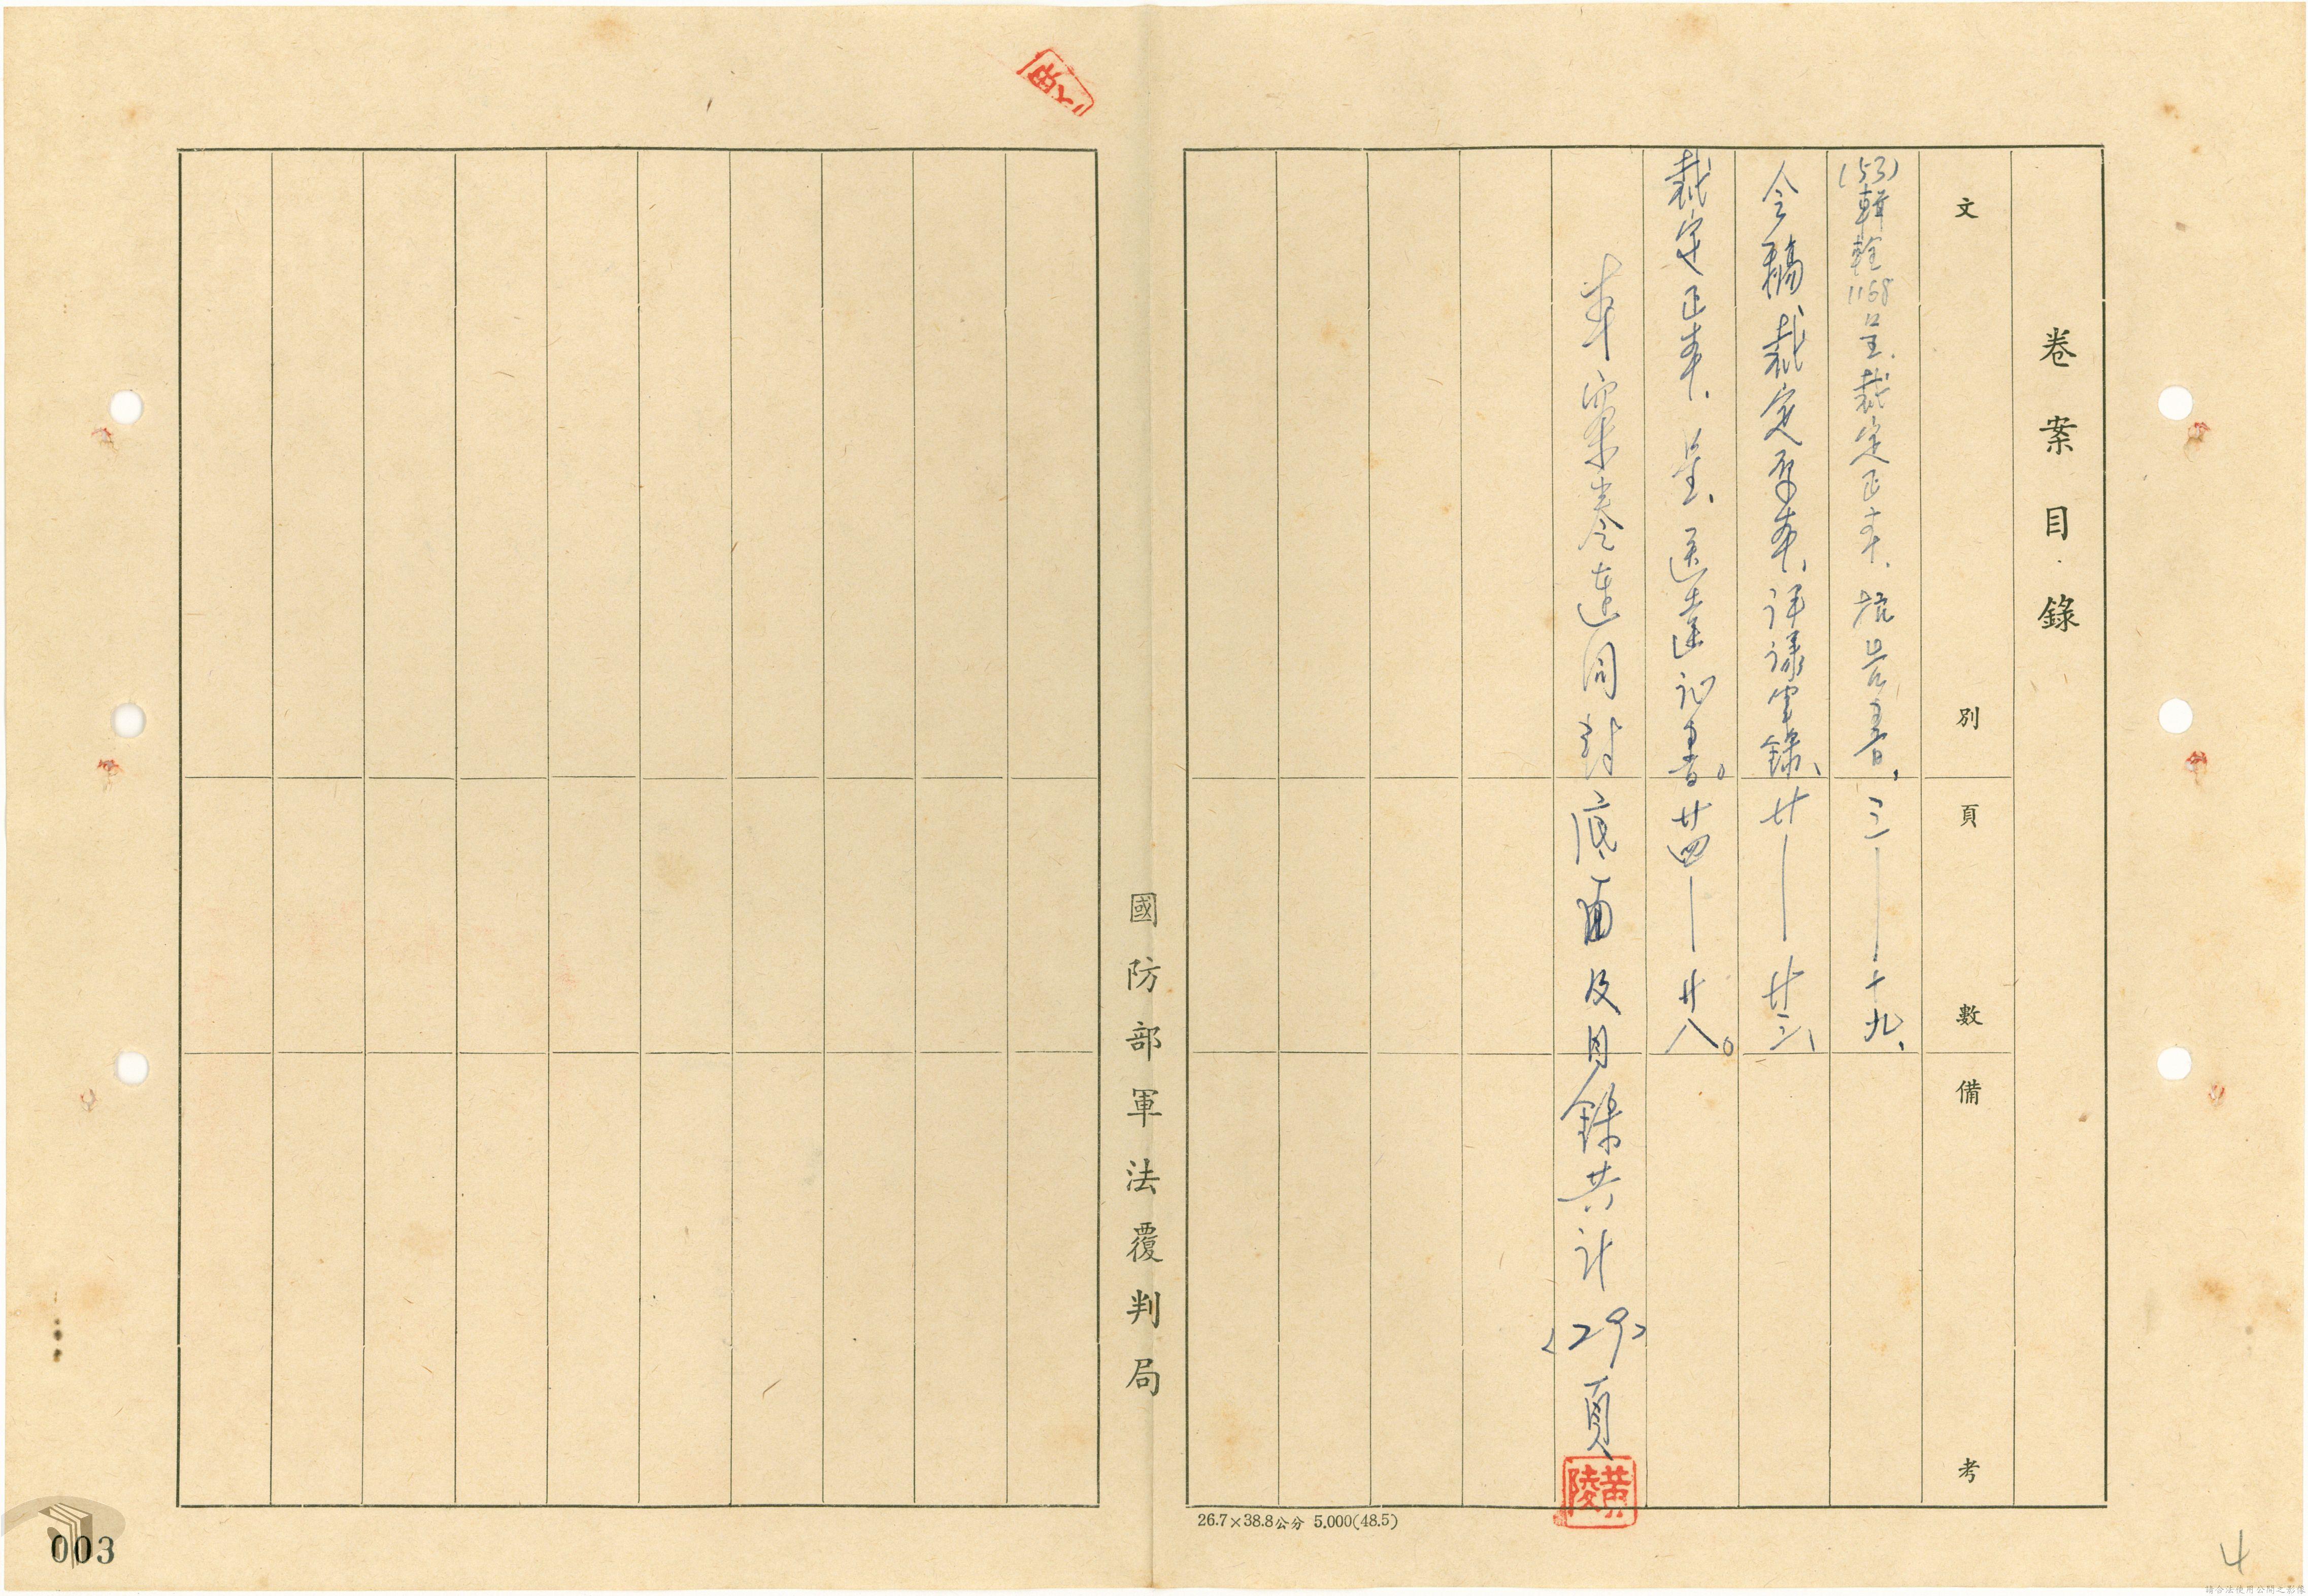 卷案目錄
文別
頁數
備考
(53)輯輇1168呈、裁定正本、抗告書、
三—十九、
令稿、裁定原本、評議筆錄、
廿—廿三、
裁定正本、呈、送達證書。
廿四—廿八。
本案卷連同封底面及目錄共計〈29〉頁
黃陵
國防部軍法覆判局
26.7×38.8公分 5.000(48.5)
003
4
請合法使用公開之影像